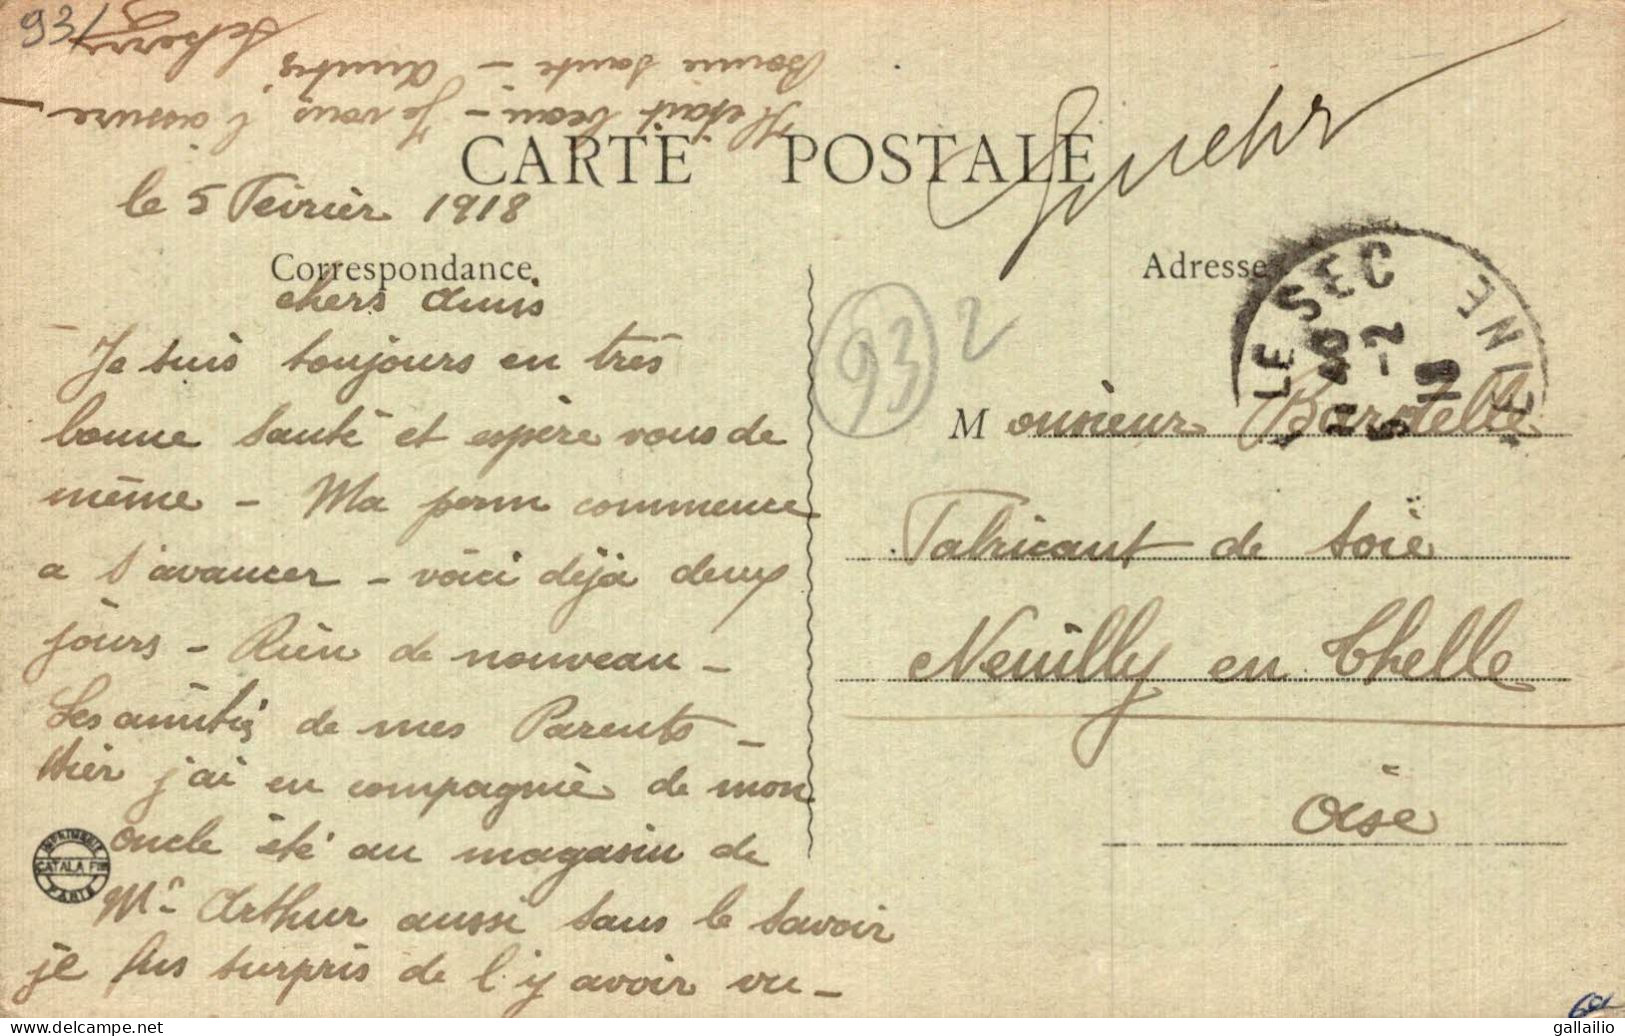 93/
Il était beau - Je vous l'assure
Bonne Santé - Amitiés
CARTE POSTALE
le 5 Feivrièr 1918
Correspondance
Adresse
chers Amis
Je suis toujours en très
bonne Santé et espère vous de
même - Ma perm commence
a s'avancer - voici déjà deux
jours - Rien de nouveau -
Les amitiés de mes Parents -
Hier j'ai en compagnie de mon
oncle été au magasin de
Mr Arthur aussi sans le savoir
je fus surpris de l'y avoir vu -
93 2
LE SEC
5 -2
18
SEINE
Monsieur Bardelle
Fabricant de Soie
Neuilly en Thelle
Oise
IMPRIMERIE
CATALA FRES
PARIS
© gallailio